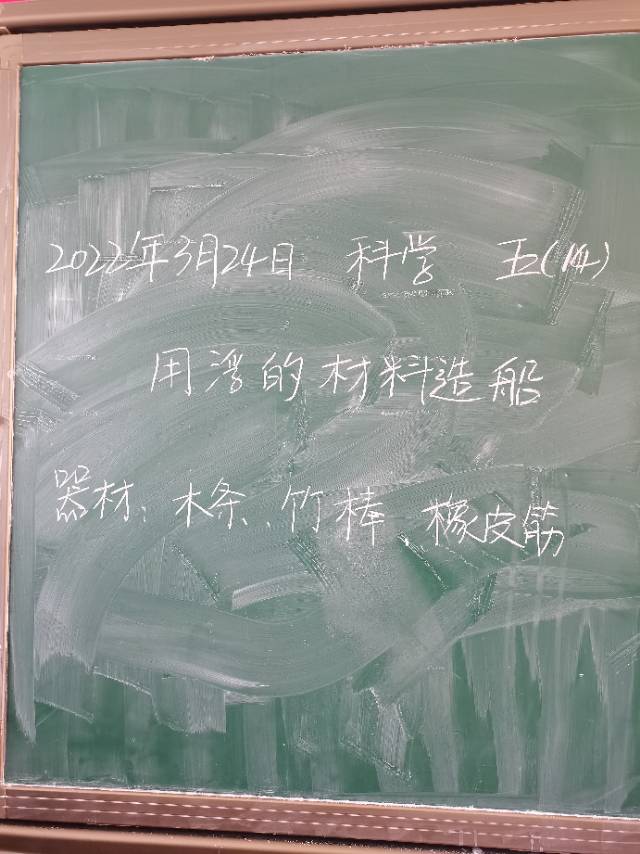 2022年3月24日 科学 五(四)
用浮的材料造船
器材:木条、竹棒、橡皮筋